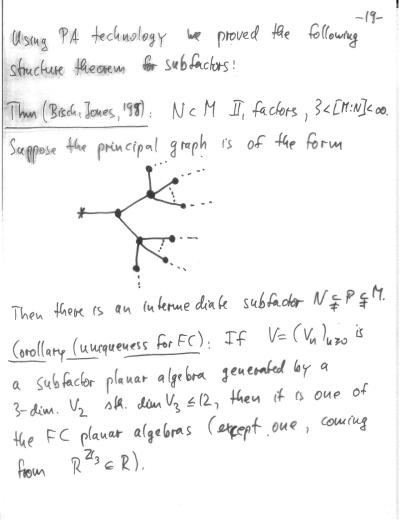 -19-
Using PA technology we proved the following
structure theorem for subfactors:
Thm (Bisch, Jones, '98): N ⊂ M II₁ factors, 3 < [M:N] < ∞.
Suppose the principal graph is of the form
*
Then there is an intermediate subfactor N ⊊ P ⊊ M.
Corollary (uniqueness for FC): If V = (Vₙ)ₙ≥₀ is
a subfactor planar algebra generated by a
3-dim. V₂ s.t. dim V₃ ≤ 12, then it is one of
the FC planar algebras (except one, coming
from R^ℤ₃ ⊂ R).